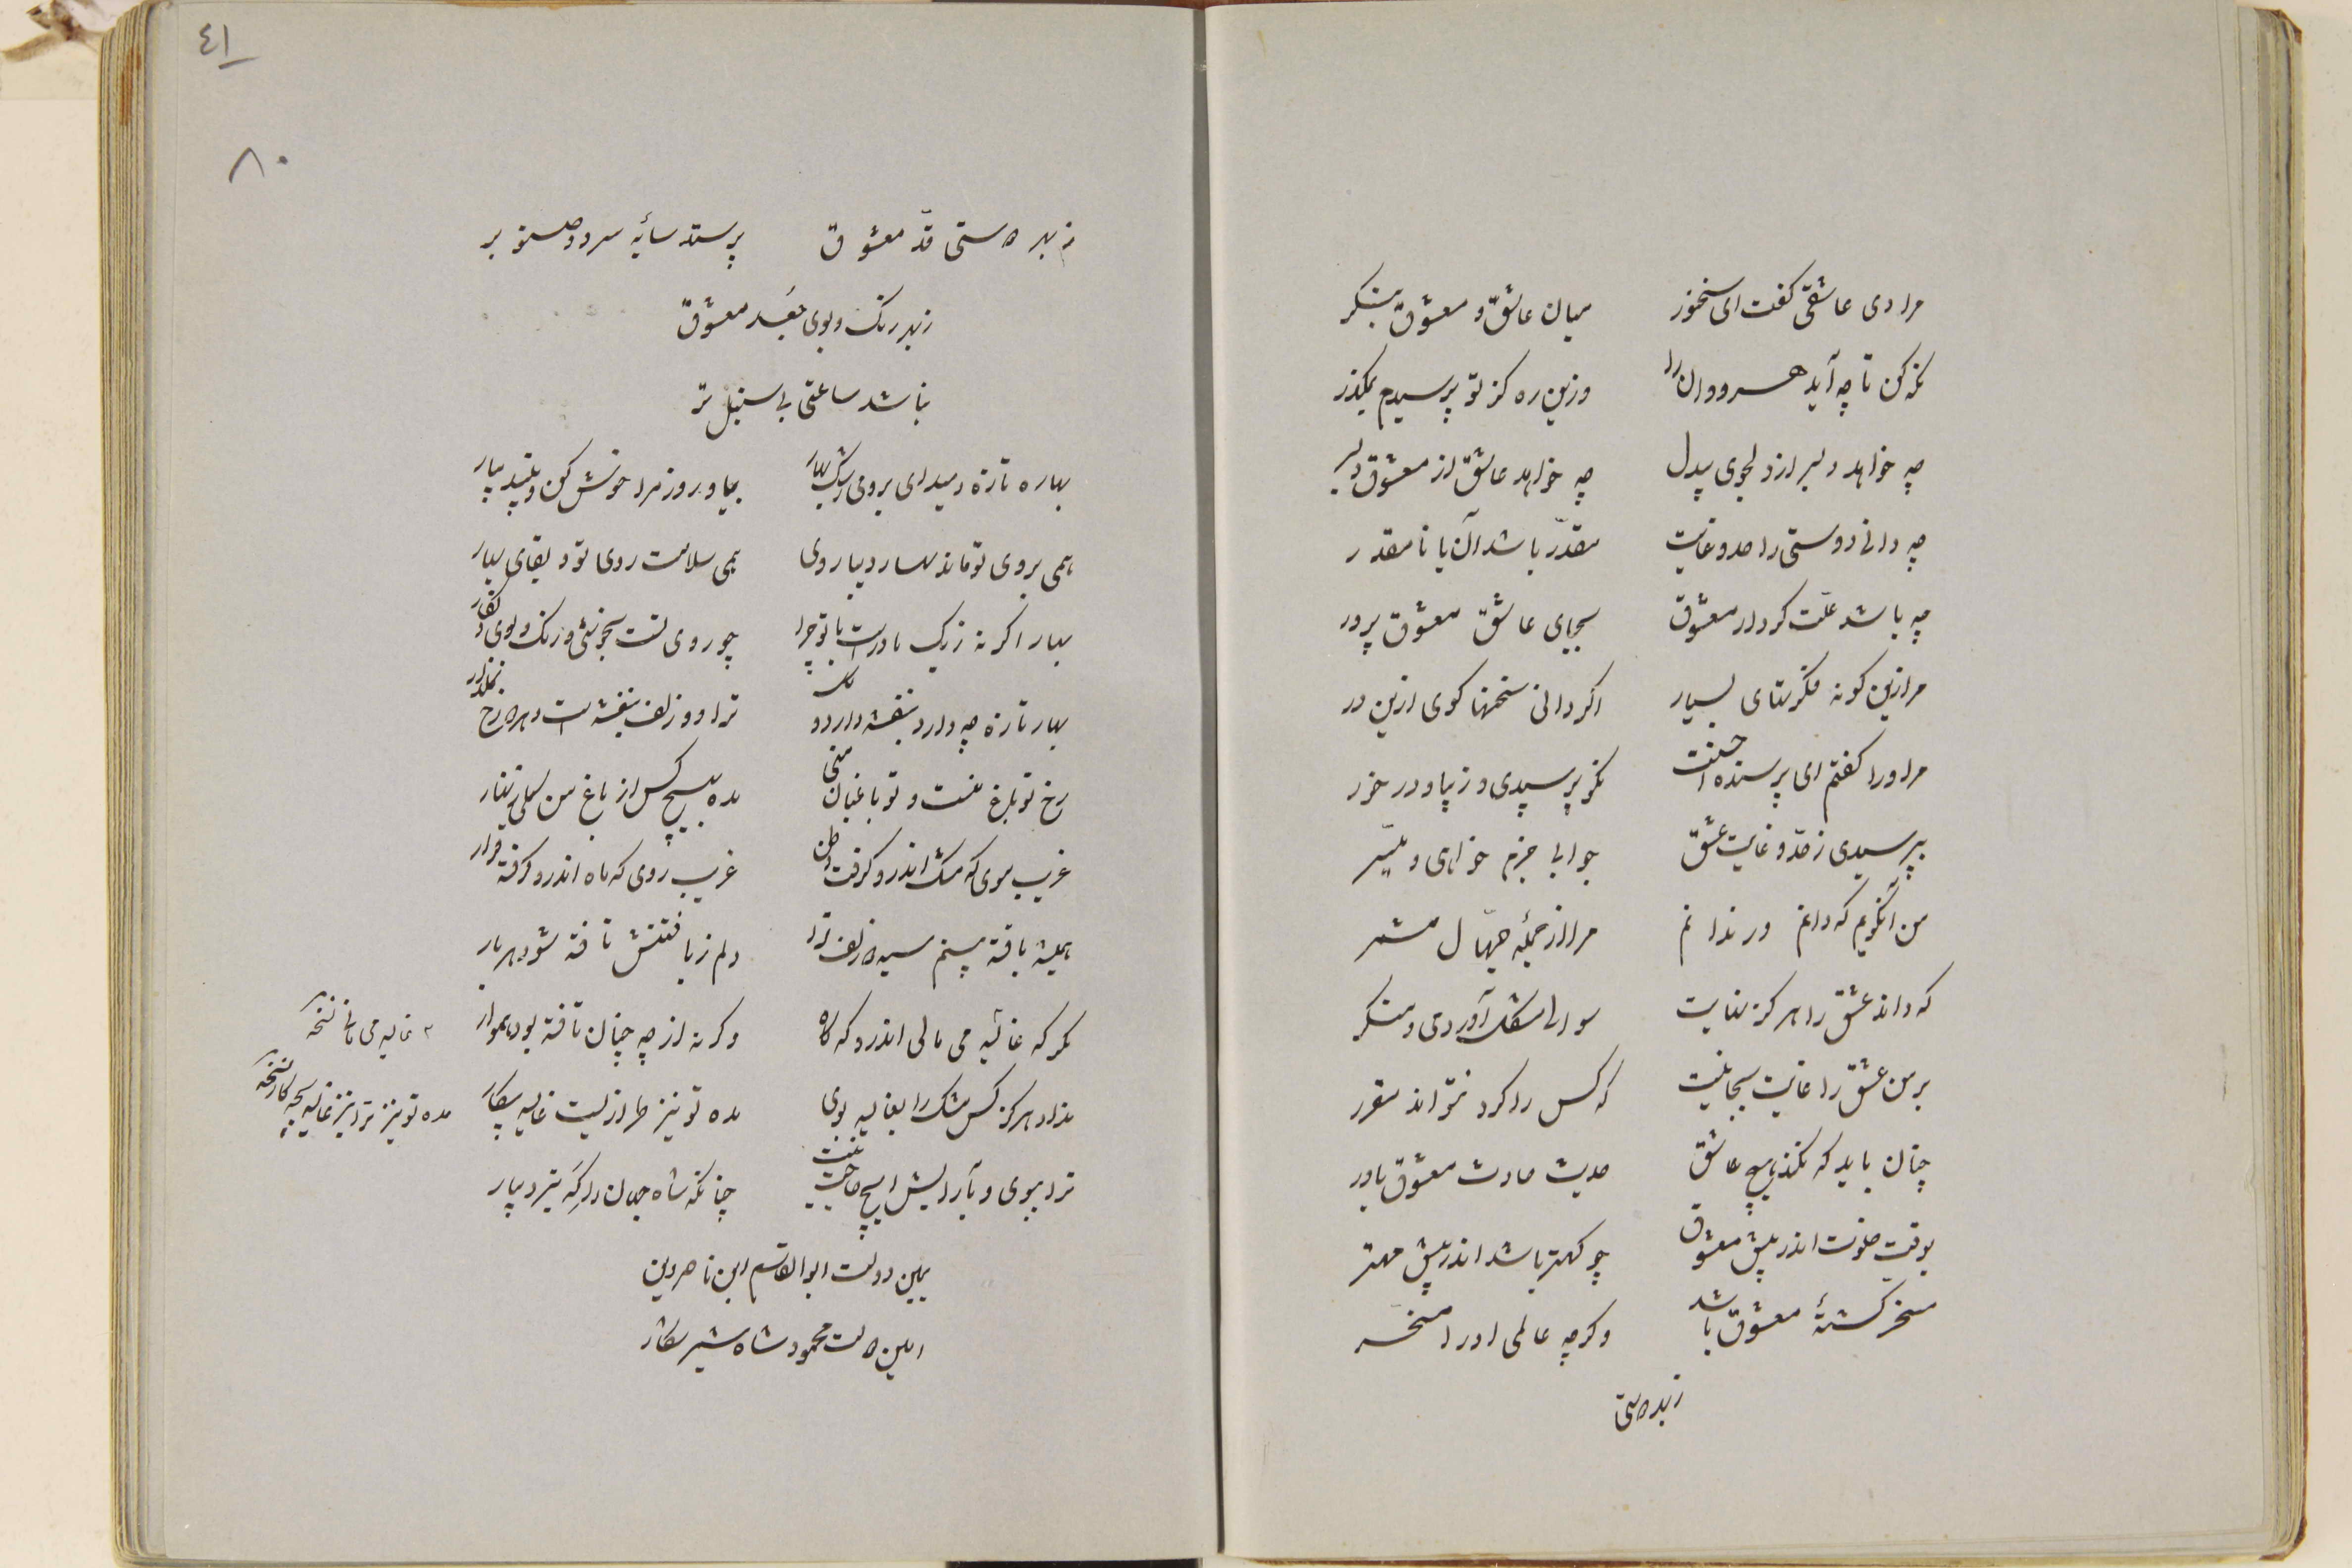 مرا دی عاشقی گفت ای سخنور میان عاشق و معشوق بنگر
نگه کن تا چه آید هر دوان را وزین ره کز تو پرسیدم بمگذر
چه خواهد دلبر از دلجوی بیدل چه خواهد عاشق از معشوق دلبر
چه دانی دوستی را حد و غایت مقدّر باشد آن یا نامقدر
چه باشد علّت کردار معشوق بجای عاشق معشوق پرور
مرا زین گونه فکرتهای بسیار اگر دانی سخنها گوی ازین در
مر او را گفتم ای پرسنده احسنت نکو پرسیدی و زیبا و در خور
بپرسیدی ز حدّ و غایت عشق جوابی جزم خواهی و میسّر
من آنگویم که دانم ور ندانم مرا از جملهٔ جهّال مشمر
که داند عشق را هرگز نهایت سوالی مشکل آوردی و منکر
بر من عشق را غایت بجائیست که کس را کرد نتواند مقرر
چنان باید که نکند هیچ عاشق حدیث حادث معشوق باور
بوقت خلوت اندر پیش معشوق چو کهتر باشد اندر پیش مهتر
مسخر گشتهٔ معشوق باشد وگرچه عالمی او را مسخر
ز بهر راستی
٤١
٨٠
ز بهر راستی قدّ معشوق پرستد سایهٔ سرو و صنوبر
ز بهر رنگ و بوی جعد معشوق
نباشد ساعتی بی سنبل تر
بهار تازه دمید ای بروی رشک بهار بیا و روز مرا خوش کن و نبید بیار
همی بروی تو ماند بهار دیبا روی همی سلامت روی تو و بقای بهار
بهار اگر نه ز یک مادرست با تو چرا چو روی تست بخوشی و رنگ و بوی و نگار
بهار تازه چه دارد بنفشه دارد و گل ترا دو زلف بنفشه ست و هر دو رخ گلنار
رخ تو باغ منست و تو باغبان منی مده به هیچ کس از باغ من گلی زنهار
غریب موی که مشک اندرو گرفت وطن غریب روی که ماه اندرو گرفته قرار
همیشه بافته بینم سیه زلف ترا دلم ز بافتنش تافته شود هر بار
مگر که غالیه می مالی اندرو گه گاه وگرنه از چه چنان تافته بود هموار
۲ غالیه می سائی نسخه
نداد هرگز کس مشک را بغالیه بوی مده تو نیز طراز لیت غالیه بکار
مده تو نیز ترا نیز غالیه بچه کار نسخه
ترا ببوی و بآرایش ایچ حاجت نیست چنانکه شاه جهان را گه نبرد بیار
یمین دولت ابوالقاسم ابن ناصر دین
امین ملت محمود شاه شیر شکار